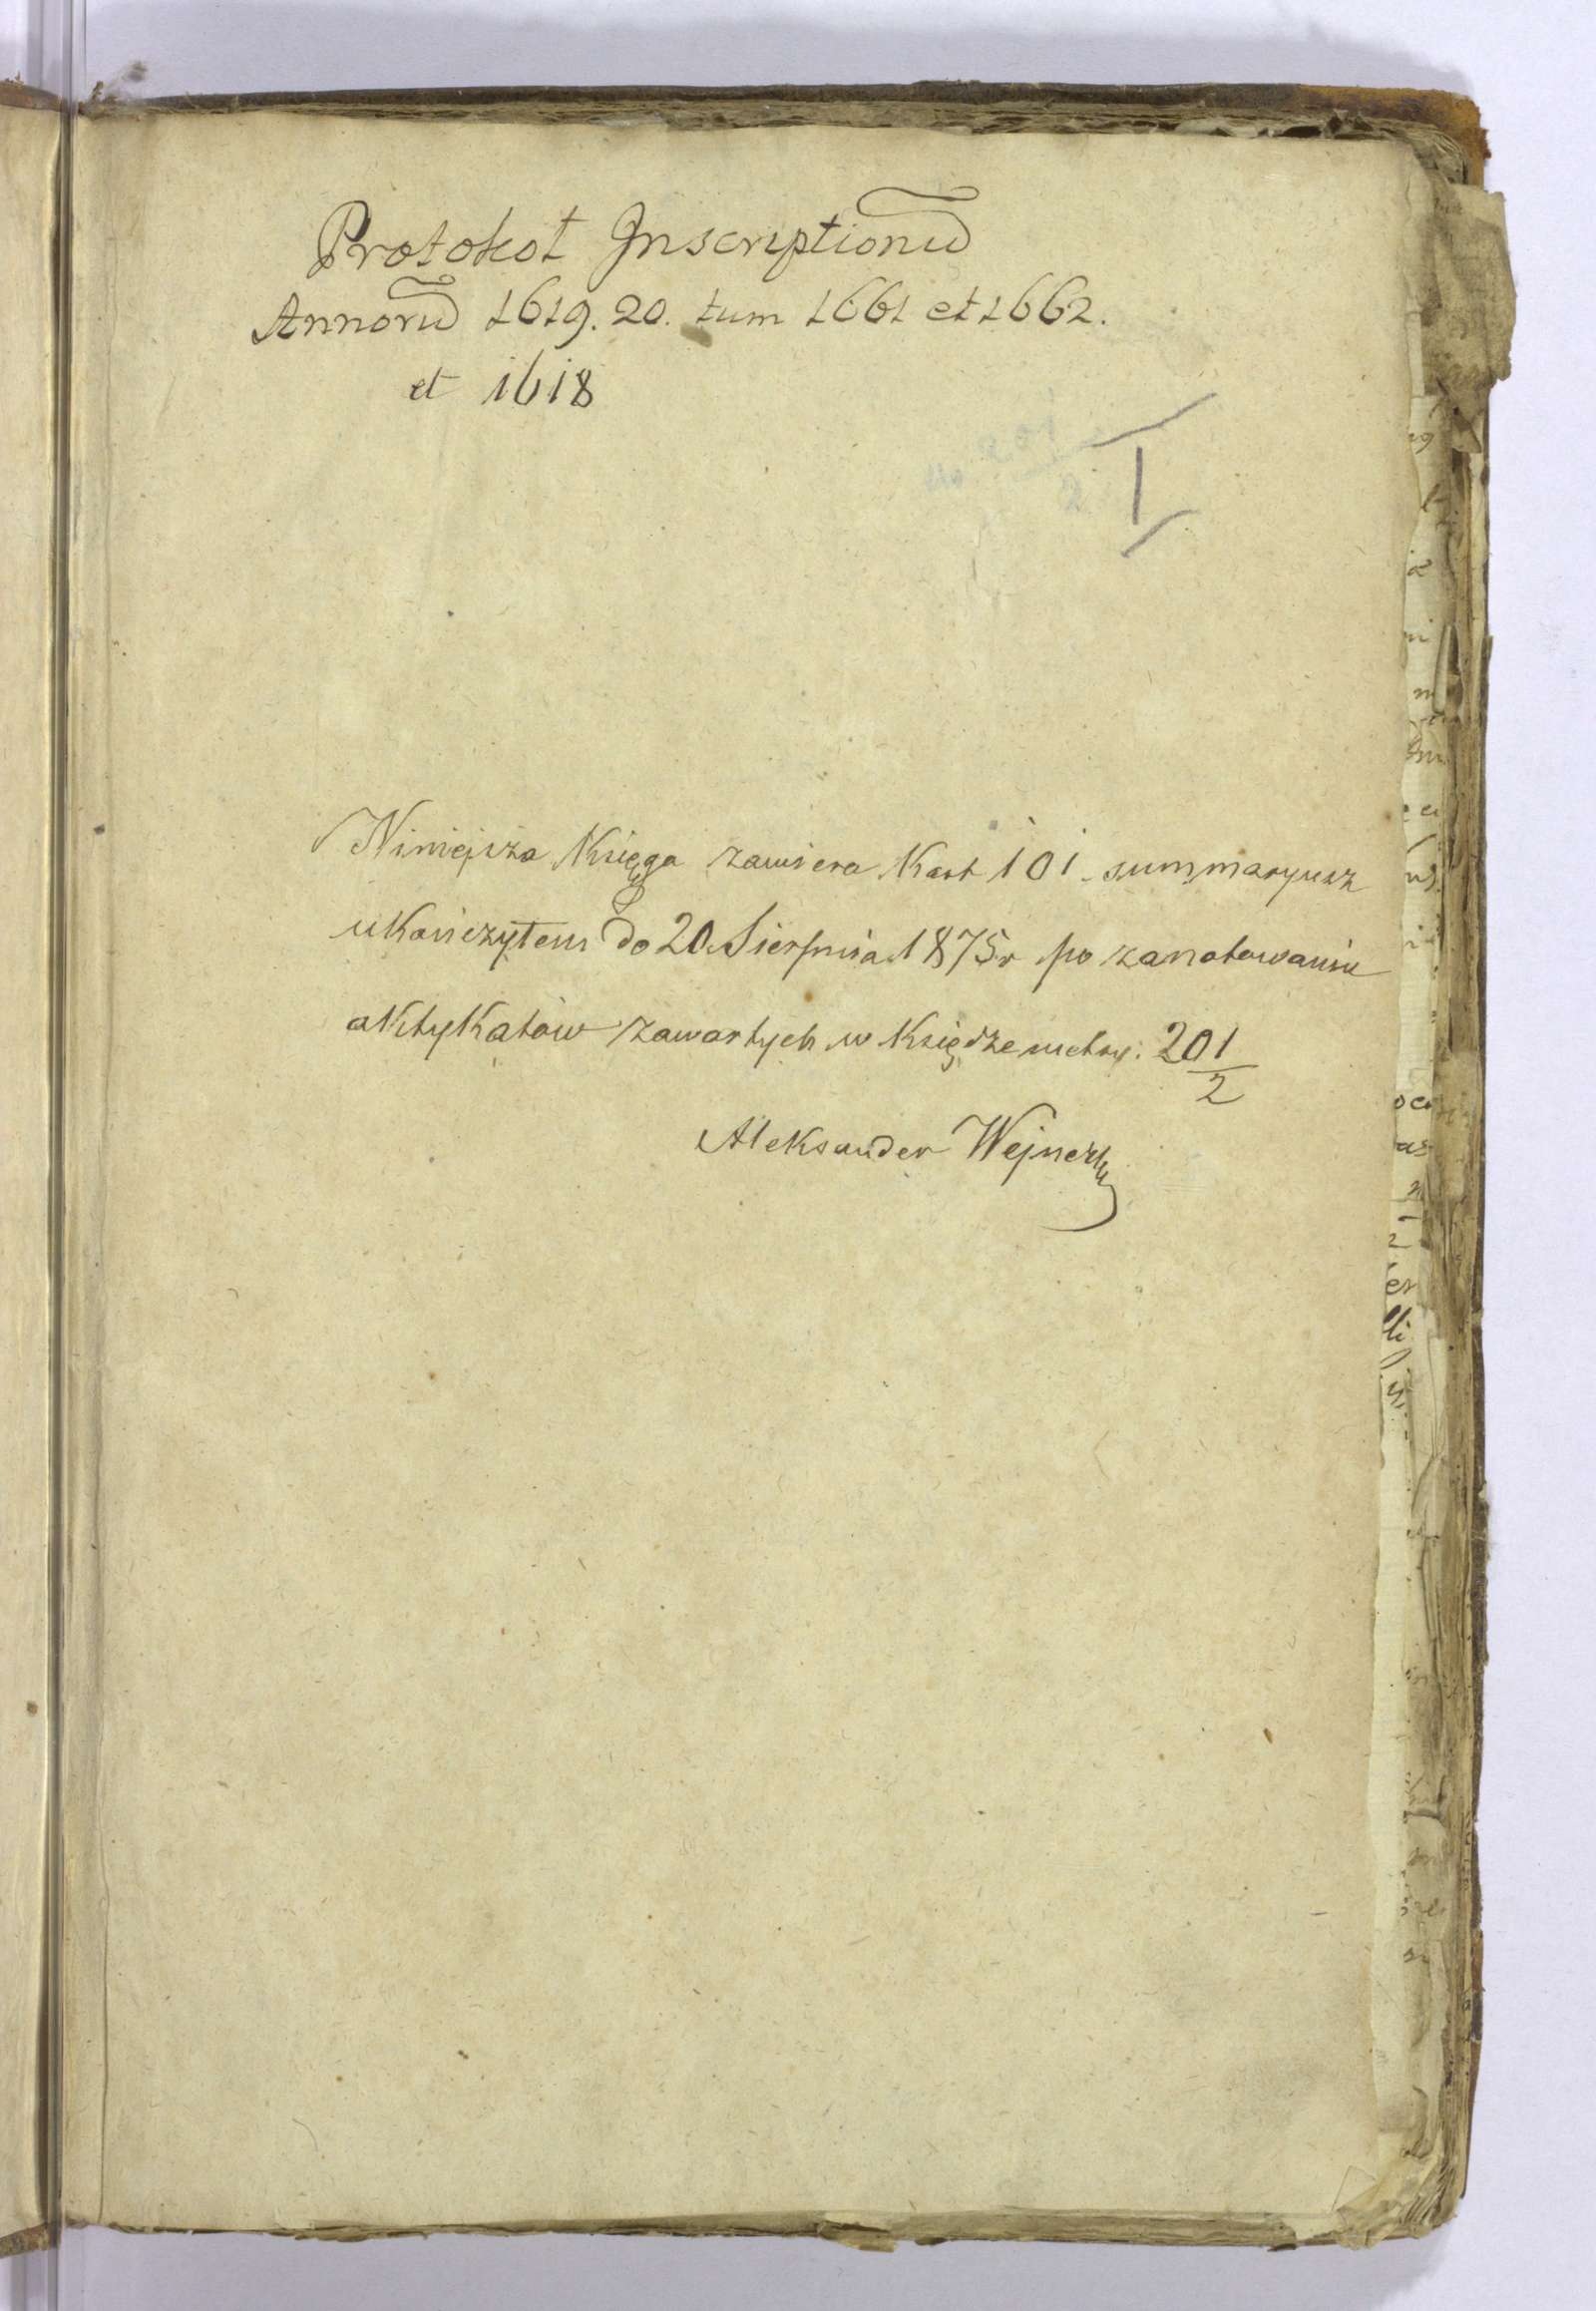 Protokoł Inscriptionu
Annoru 1619. 20. tum 1661 et 1662.
et 1618
I
Niniejsza Księga zawiera Kart 101. summaryusz
ukończyłem do 20 Sierpnia 1875 r po zanotowaniu
aktykatów zawartych w Księdze metry. 201/2
Aleksander Wejnert